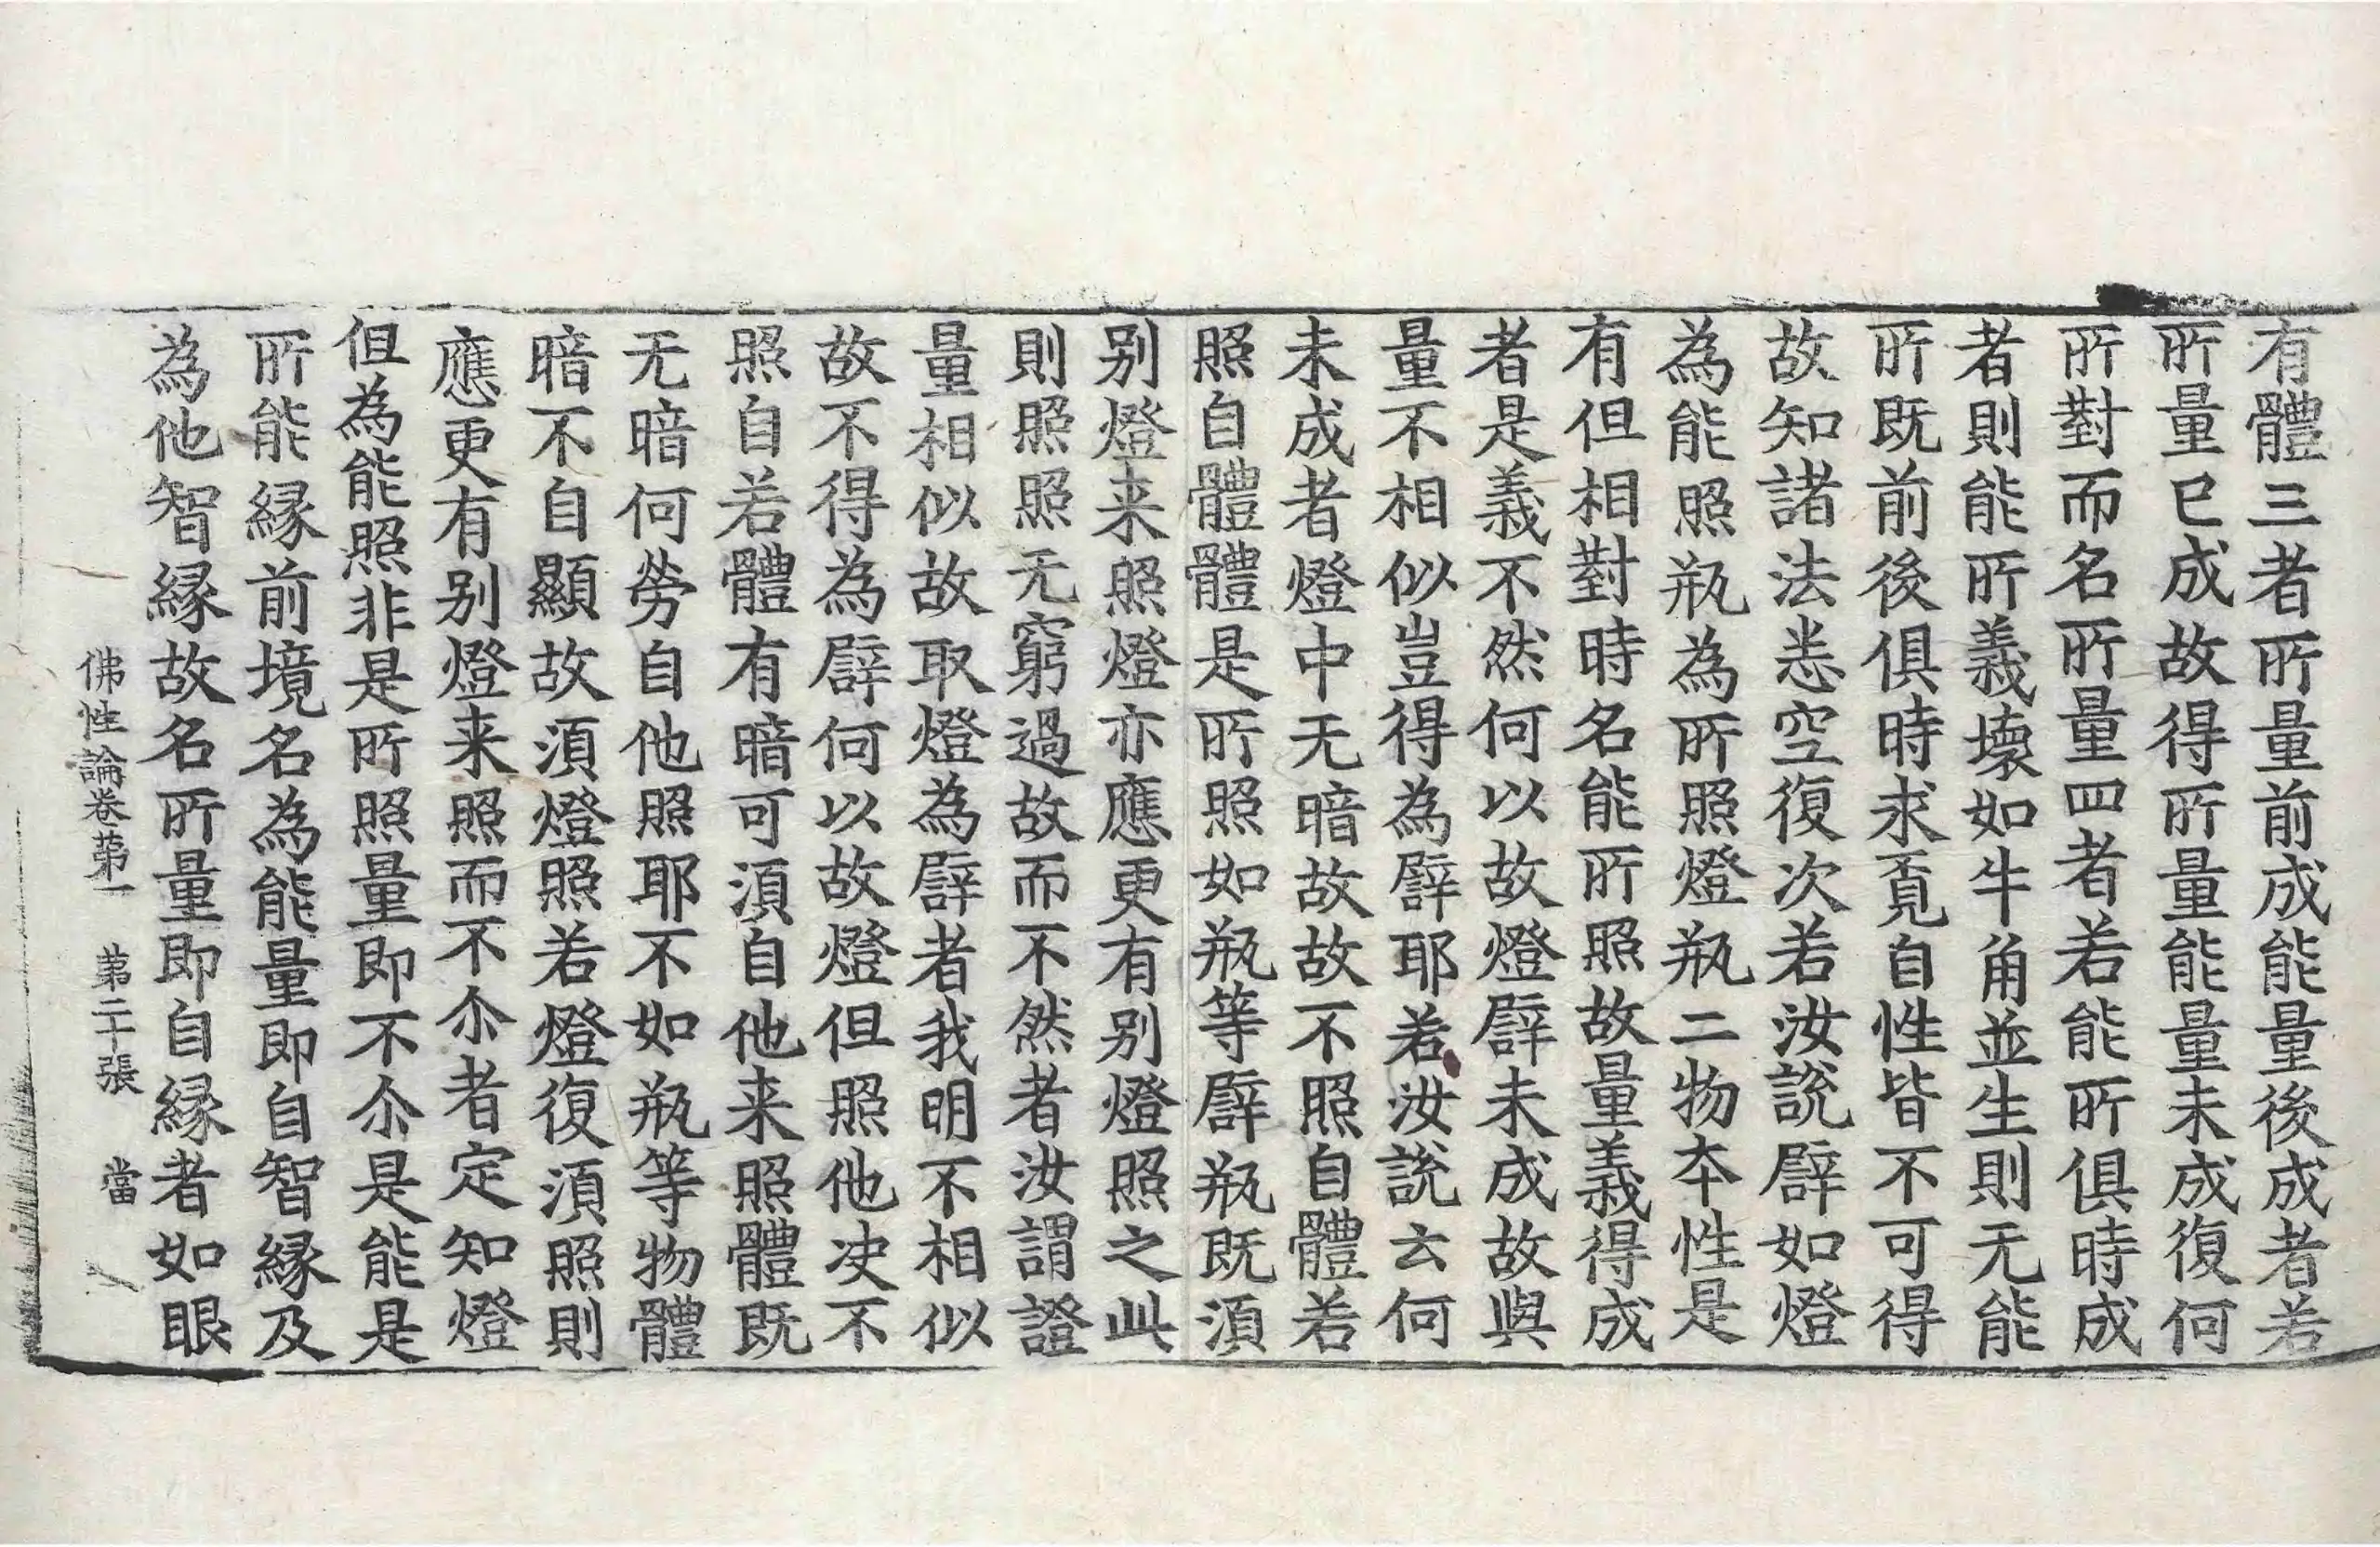 有體三者所量前成能量後成者若
所量已成故得所量能量未成復何
所對而名所量四者若能所俱時成
者則能所義壞如牛角並生則无能
所既前後俱時求覓自性皆不可得
故知諸法悉空復次若汝說譬如燈
為能照瓶為所照燈瓶二物本性是
有但相對時名能所照故量義得成
者是義不然何以故燈譬未成故與
量不相似豈得為譬耶若汝說云何
未成者燈中无暗故故不照自體若
照自體體是所照如瓶等譬瓶既須
别燈来照燈亦應更有别燈照之此
則照照无窮過故而不然者汝謂證
量相似故取燈為譬者我明不相似
故不得為譬何以故燈但照他決不
照自若體有暗可須自他来照體既
无暗何勞自他照耶不如瓶等物體
暗不自顯故須燈照若燈復須照則
應更有别燈来照而不尒者定知燈
但為能照非是所照量即不尒是能是
所能緣前境名為能量即自智緣及
為他智緣故名所量即自緣者如眼
佛性論卷第一　第二十張　當